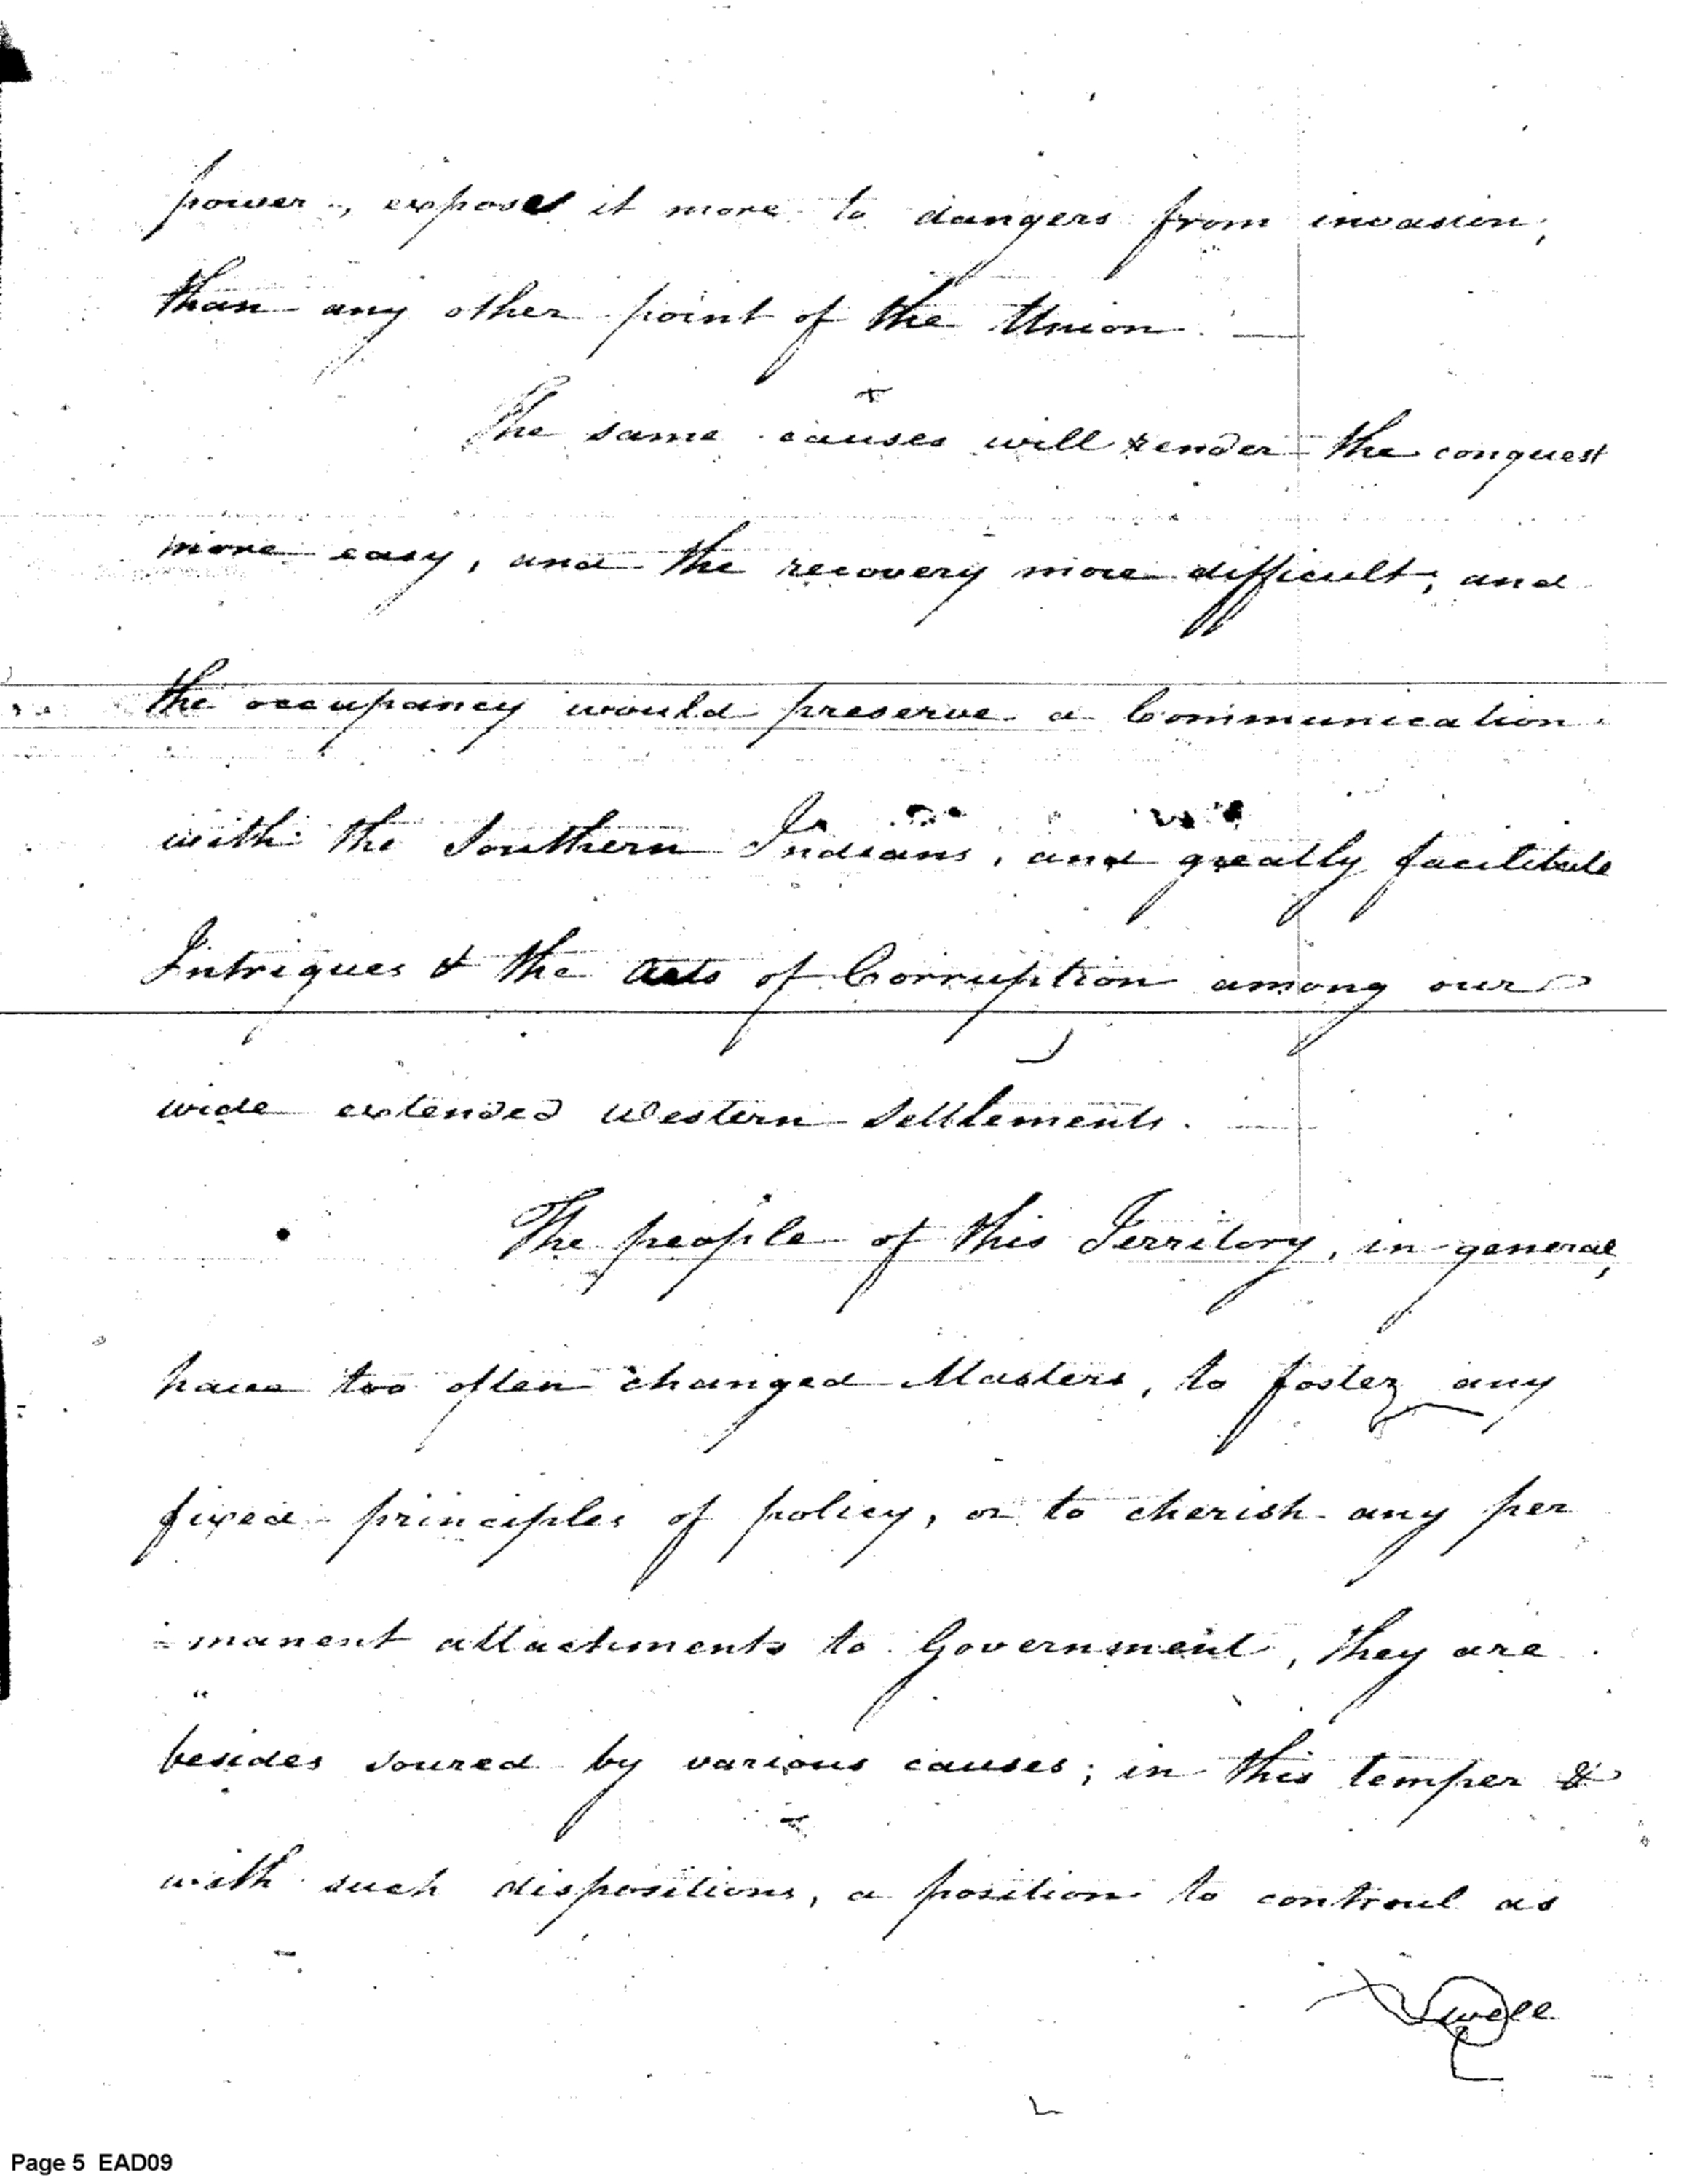 power, exposes it more to dangers from invasion,
than any other point of the Union. —
The same causes will render the conquest
more easy, and the recovery more difficult, and
the occupancy would preserve a Communication
with the Southern Indians, and greatly facilitate
Intrigues & the Acts of Corruption among our
wide extended Western Settlements. —
The people of this Territory, in general,
have too often changed Masters, to foster any
fixed principles of policy, or to cherish any per
=manent attachments to Government, they are
besides soured by various causes; in this temper &
with such dispositions, a position to controul as
well
Page 5 EAD09